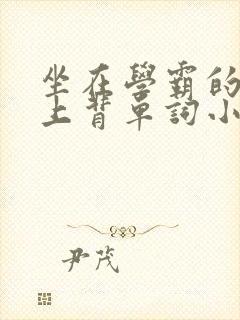 坐在學霸的
上背單詞小
尹茂